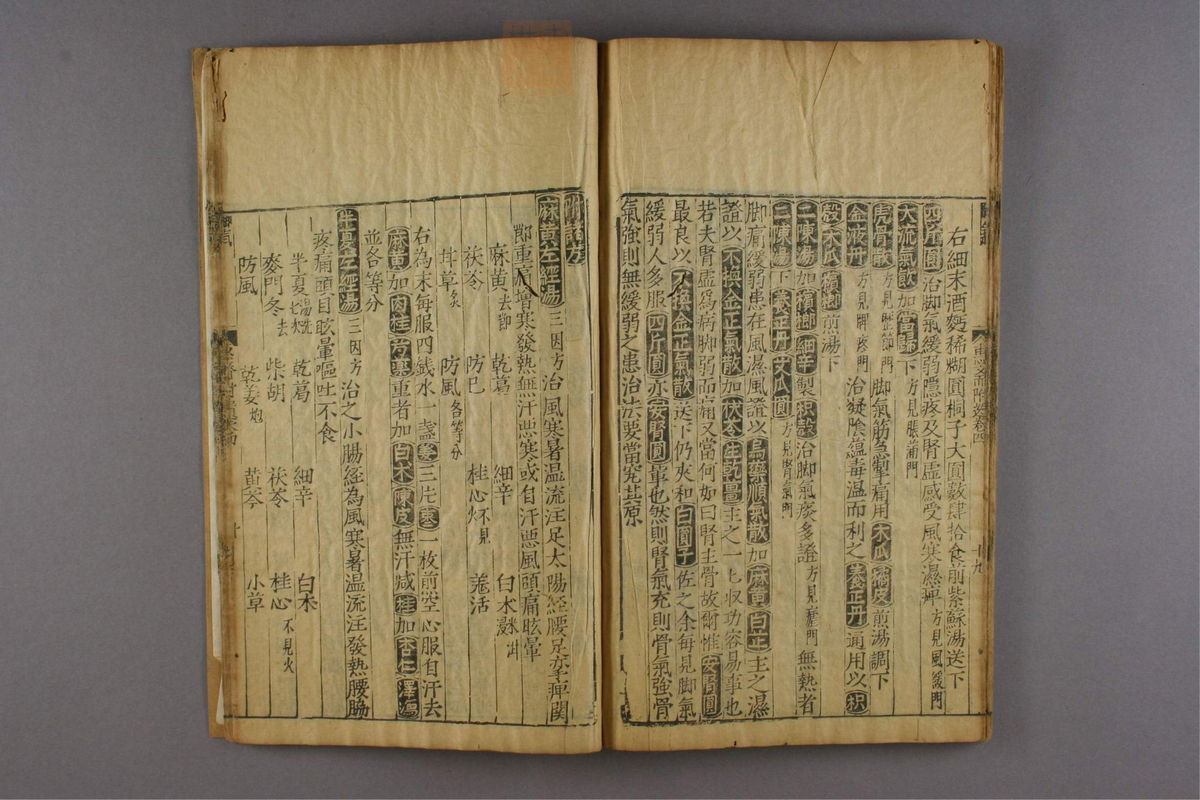 右細末酒麪稀糊圓桐子大圓數肆拾食前紫蘇湯送下
四斤圓治脚氣緩弱隱疼及腎虛感受風寒濕痺方見風緩門
大流氣飲加當歸下方見脹滿門
虎骨散方見歷節門脚氣筋急掣痛用木瓜橘皮煎湯調下
金液丹方見脚疼門治凝陰蘊毒温而利之養正丹通用以枳
殼木瓜檳榔煎湯下
二陳湯加檳榔細辛製枳殼治脚氣痰多證方見門無熱者
二陳湯下養正丹艾瓜圓方見腎氣門
脚痛緩弱患在風濕風證以烏藥順氣散加麻黃白芷主之濕
證以不換金正氣散加茯苓生乾薑主之一七収功容易事也
若夫腎虛為病脚弱而痛又當何如曰腎主骨故爾惟安腎圓
最良以不換金正氣散送下仍夾和白圓子佐之余每見脚氣
緩弱人多服四斤圓亦安腎圓軰也然則腎氣充則骨氣強骨
氣強則無緩弱之患治法要當究其原
附諸方
麻黃左經湯三因方治風寒暑温流注足太陽經腰足攣痺關
節重痛增寒發熱無汗惡寒或自汗惡風頭痛眩暈
麻黃去節 乾葛 細辛 白朮
茯苓 防已 桂心不見 羗活
甘草炙 防風各等分
右為末每服四錢水一盞姜三片棗一枚煎空心服自汗去
麻黃加肉桂芍藥重者加白朮陳皮無汗減桂加杏仁澤瀉
並各等分
半夏左經湯三因方治之小腸經為風寒暑温流注發熱腰脇
疼痛頭目眩暈嘔吐不食
半夏湯洗七次 乾葛 細辛 白朮
麥門冬去 柴胡 茯苓 桂心不見火
防風 乾姜炮 黃芩 小草